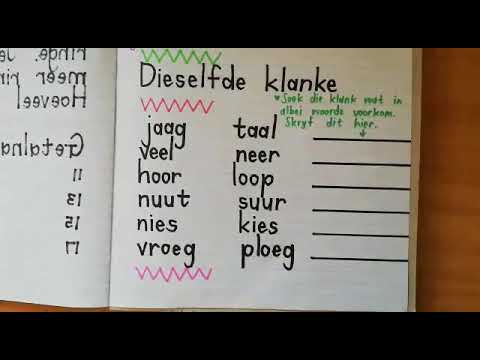 Dieselfde klanke
• Soek die klank wat in
albei woorde voorkom.
Skryf dit hier.
jaag taal
veel neer
hoor loop
nuut suur
nies kies
vroeg ploeg
meer
Hoeveel
11
13
15
17